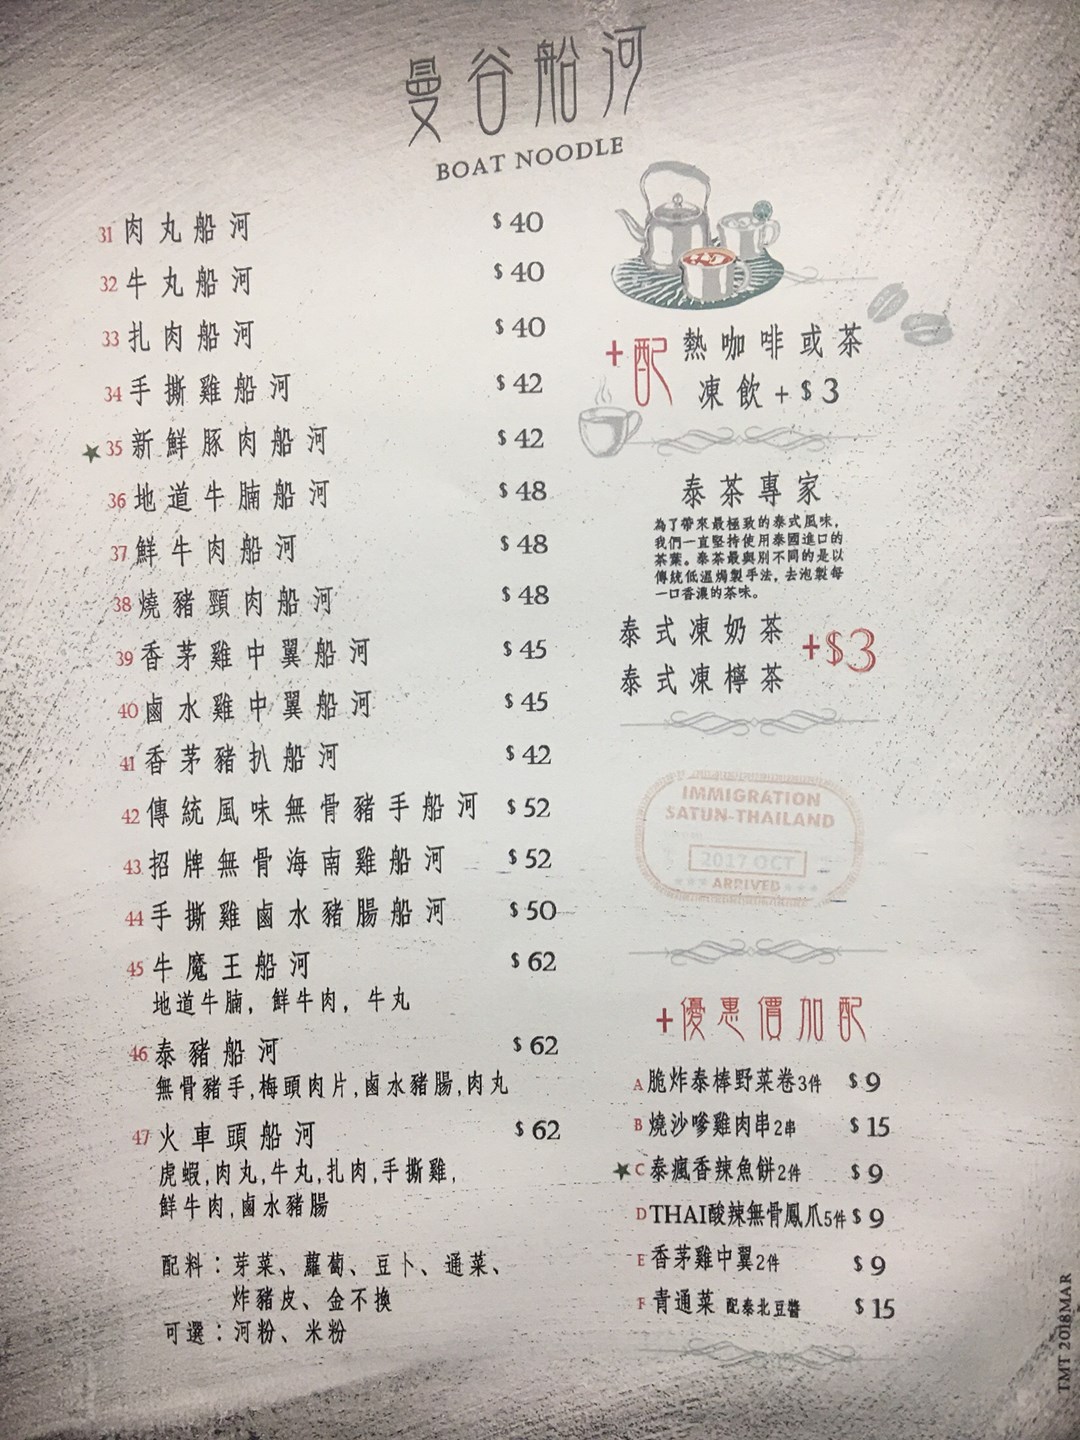 曼谷船河
BOAT NOODLE
31 肉丸船河 $40
32 牛丸船河 $40
33 扎肉船河 $40
34 手撕雞船河 $42
★ 35 新鮮豚肉船河 $42
36 地道牛腩船河 $48
37 鮮牛肉船河 $48
38 燒豬頸肉船河 $48
39 香茅雞中翼船河 $45
40 鹵水雞中翼船河 $45
41 香茅豬扒船河 $42
42 傳統風味無骨豬手船河 $52
43 招牌無骨海南雞船河 $52
44 手撕雞鹵水豬腸船河 $50
45 牛魔王船河 $62
地道牛腩，鮮牛肉，牛丸
46 泰豬船河 $62
無骨豬手,梅頭肉片,鹵水豬腸,肉丸
47 火車頭船河 $62
虎蝦,肉丸,牛丸,扎肉,手撕雞,
鮮牛肉,鹵水豬腸
配料：芽菜、蘿蔔、豆卜、通菜、
炸豬皮、金不換
可選：河粉、米粉
+配 熱咖啡或茶
凍飲+$3
泰茶專家
為了帶來最極致的泰式風味，
我們一直堅持使用泰國進口的
茶葉。泰茶最與別不同的是以
傳統低溫焗製手法，去泡製每
一口香濃的茶味。
泰式凍奶茶
泰式凍檸茶
+$3
IMMIGRATION
SATUN-THAILAND
2017 OCT
ARRIVED
+優惠價加配
A 脆炸泰棒野菜卷3件 $9
B 燒沙嗲雞肉串2串 $15
★ C 泰瘋香辣魚餅2件 $9
D THAI酸辣無骨鳳爪5件 $9
E 香茅雞中翼2件 $9
F 青通菜 配泰北豆醬 $15
TMT 2018MAR